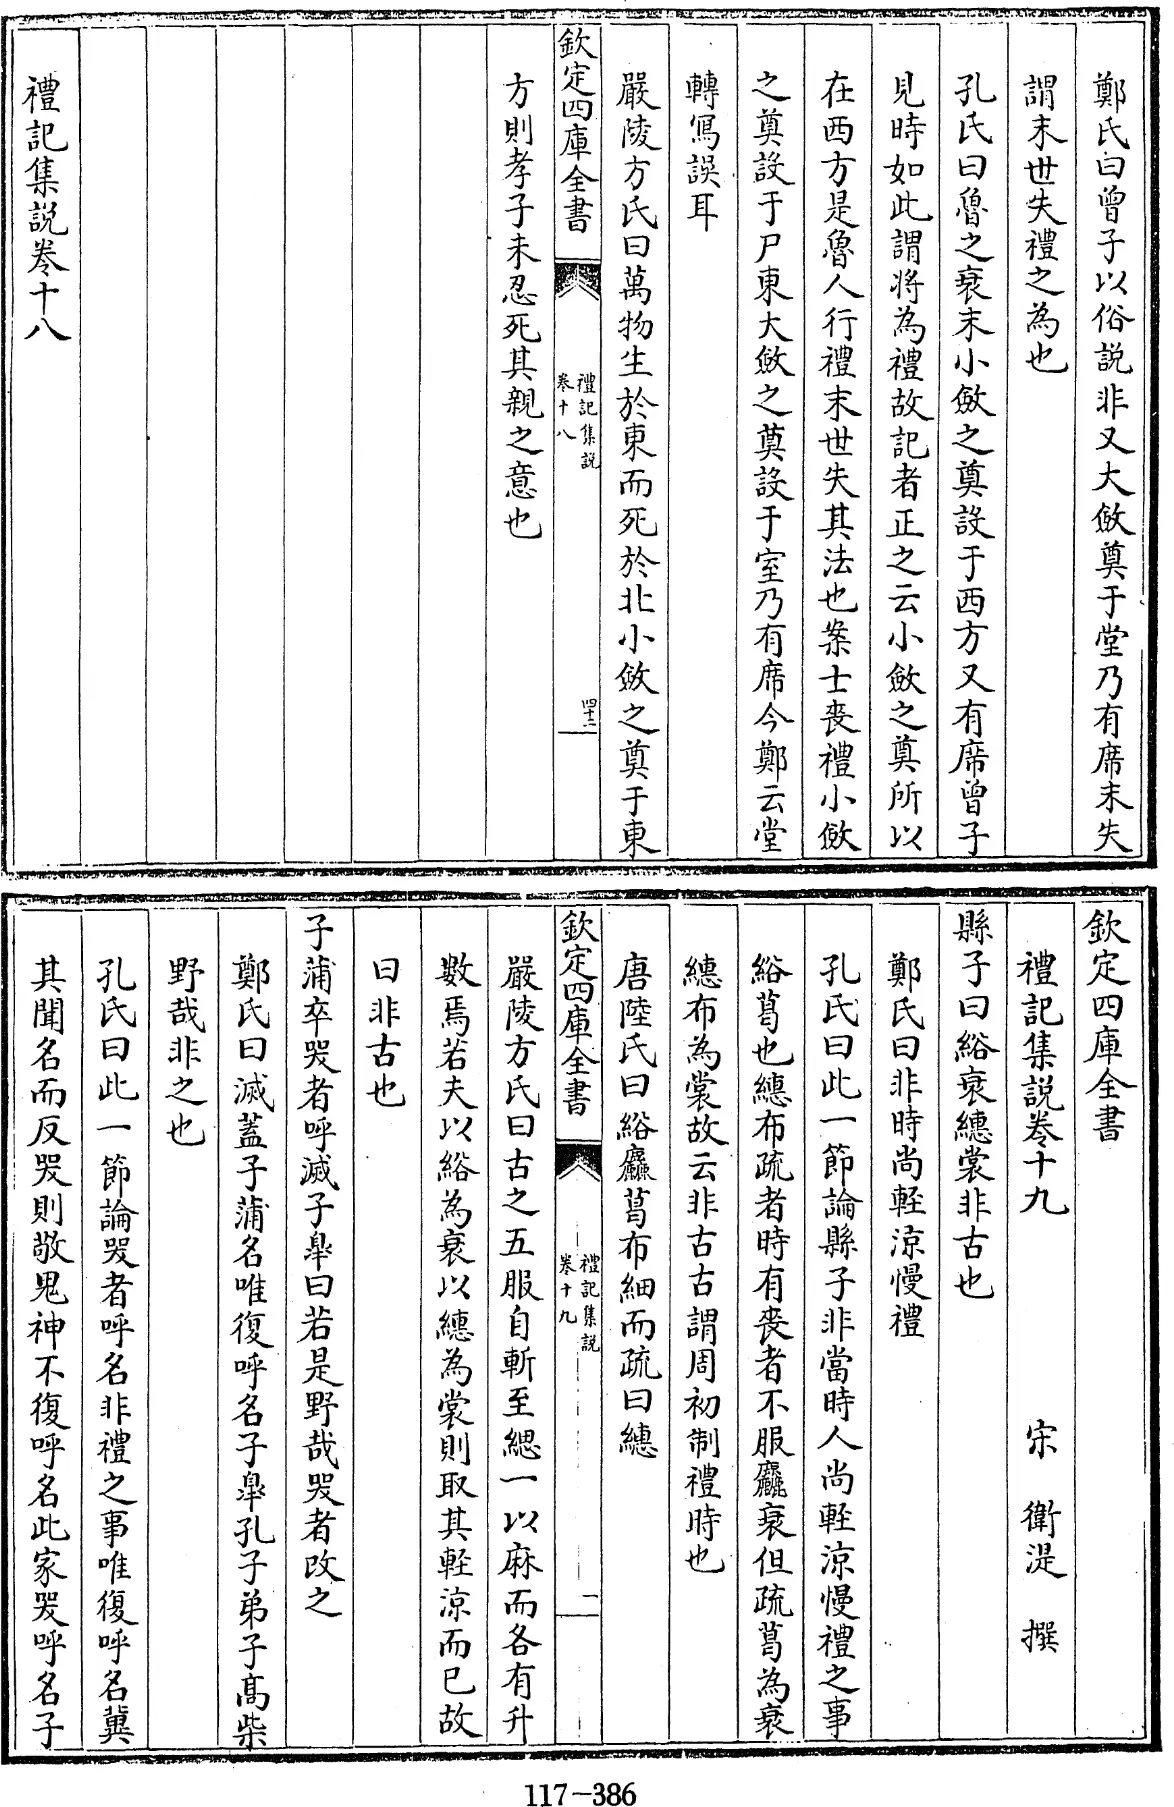 鄭氏曰曾子以俗説非又大斂奠于堂乃有席末失
謂末世失禮之為也
孔氏曰魯之衰末小斂之奠設于西方又有席曾子
見時如此謂將為禮故記者正之云小斂之奠所以
在西方是魯人行禮末世失其法也案士喪禮小斂
之奠設于尸東大斂之奠設于室乃有席今鄭云堂
轉寫誤耳
嚴陵方氏曰萬物生於東而死於北小斂之奠于東
欽定四庫全書
禮記集說
卷十八
四十三
方則孝子未忍死其親之意也
禮記集説卷十八
欽定四庫全書
禮記集説卷十九 宋 衛湜 撰
縣子曰綌衰繐裳非古也
鄭氏曰非時尚輕涼慢禮
孔氏曰此一節論縣子非當時人尚輕涼慢禮之事
綌葛也繐布疏者時有喪者不服麤衰但疏葛為衰
繐布為裳故云非古古謂周初制禮時也
唐陸氏曰綌麤葛布細而疏曰繐
欽定四庫全書
禮記集說
卷十九
一
嚴陵方氏曰古之五服自斬至緦一以麻而各有升
數焉若夫以綌為衰以繐為裳則取其輕涼而已故
曰非古也
子蒲卒哭者呼滅子臯曰若是野哉哭者改之
鄭氏曰滅蓋子蒲名唯復呼名子臯孔子弟子髙柴
野哉非之也
孔氏曰此一節論哭者呼名非禮之事唯復呼名冀
其聞名而反哭則敬鬼神不復呼名此家哭呼名子
117-386